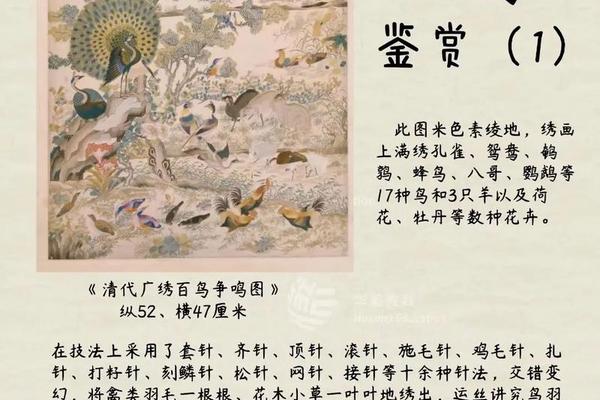 鉴赏（1）
此图米色素绫地，绣画
上满绣孔雀、鸳鸯、鹌
鹑、蜂鸟、八哥、鹦鹉等
17种鸟和3只羊以及荷
花、牡丹等数种花卉。
《清代广绣百鸟争鸣图》
纵52、横47厘米
在技法上采用了套针、齐针、顶针、滚针、施毛针、鸡毛针、扎
针、打籽针、刻鳞针、松针、网针、接针等十余种针法，交错变
幻，将禽类羽毛一根根、花木小草一叶叶地绣出，运丝讲究鸟羽